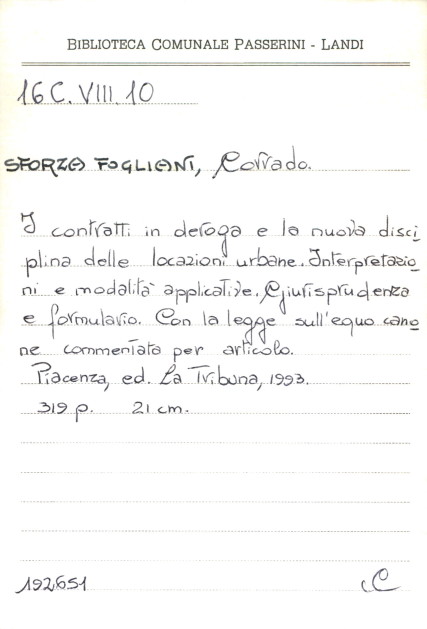 BIBLIOTECA COMUNALE PASSERINI - LANDI
16C.VIII.10
SFORZA FOGLIANI, Corrado.
I contratti in deroga e la nuova disci
plina delle locazioni urbane. Interpretazio
ni e modalità applicative. Giurisprudenza
e formulario. Con la legge sull'equo cano
ne commentata per articolo.
Piacenza, ed. La Tribuna, 1993.
319 p. 21 cm.
192651